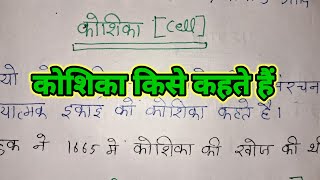 कोशिका [cell]
कोशिका किसे कहते हैं
यात्मक इकाई को कोशिका कहते हैं।
हुक ने 1665 में कोशिका की खोज की थी